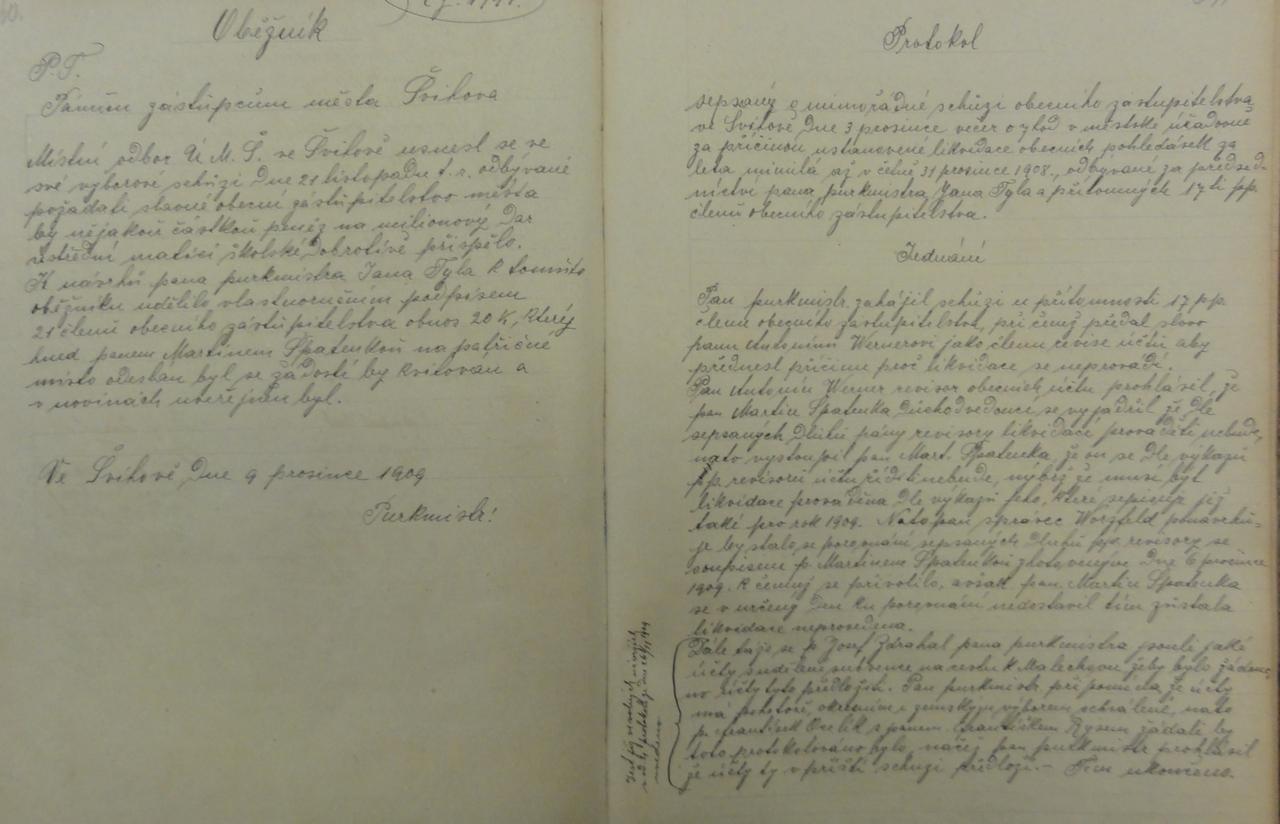 Oběžník
P. T.
Pánům zástupcům města Švihova
Místní odbor Ú. M. Š. ve Švihově usnesl se ve
své výborové schůzi dne 21 listopadu t. r. odbývané
požádati slavné obecní zastupitelstvo města
by nějakou částkou peněz na milionový dar
ústřední matici školské dobrotivě přispělo.
K návrhu pana purkmistra Jana Tyla k tomuto
oběžníku udělilo vlastnoručním podpisem
21 členů obecního zastupitelstva obnos 20 K, který
hned panem Martinem Špatenkou na patřičné
místo odeslán byl se žádostí by kvitován a
v novinách uveřejněn byl.
Ve Švihově, dne 9 prosince 1909
Purkmistr!
Protokol
sepsaný o mimořádné schůzi obecního zastupitelstva
ve Švihově dne 3 prosince večer o 7 hod v městské úřadovně
za příčinou ustanovené likvidace obecních pohledávek za
léta minulá až v četně 31 prosince 1908., odbývané za předsed-
nictví pana purkmistra Jana Tyla a přítomných 17ti pp.
členů obecního zastupitelstva.
Jednání
Pan purkmistr zahájil schůzi u přítomnosti 17 pp.
členů obecního zastupitelstva, při čemž předal slovo
panu Antonínu Wernerovi jako členu revise účtů aby
přednesl příčinu proč likvidace se neprovádí.
Pan Antonín Werner revisor obecních účtů prohlásil, že
pan Martin Špatenka důchodvedoucí se vyjádřil že dle
sepsaných dluhů pány revisory likvidaci prováděti nebude,
nato vystoupil pan Mart. Špatenka, že on se dle výkazů
pp. revisorů účtů říditi nebude, nýbrž že musí být
likvidace prováděna dle výkazů jeho, které sepisuje již
také pro rok 1909. Nato pan správec Worzfeld ponavrhu-
je by stalo se porovnání sepsaných dluhů pp. revisory se
soupisem p. Martinem Špatenkou zhotoveným dne 6 prosince
1909. k čemuž se přivolilo, avšak pan Martin Špatenka
se v určený den ku porovnání nedostavil tím zůstala
likvidace neprovedena.
Dále táže se p Josef Zdráhal pana purkmistra jsouli jaké
účty s udělení subvence na cestu k Malechovu žeby bylo žádou-
no účty tyto předložiti. Pan purkmistr připomíná že účty
má pohotově, okresním i zemským výborem schválené, nato
p. František Ocelík s panem Františkem Rysem žádali by
toto protokolováno bylo, načež pan purkmistr prohlásil
že účty ty v příští schůzi předloží. – Tím ukončeno.